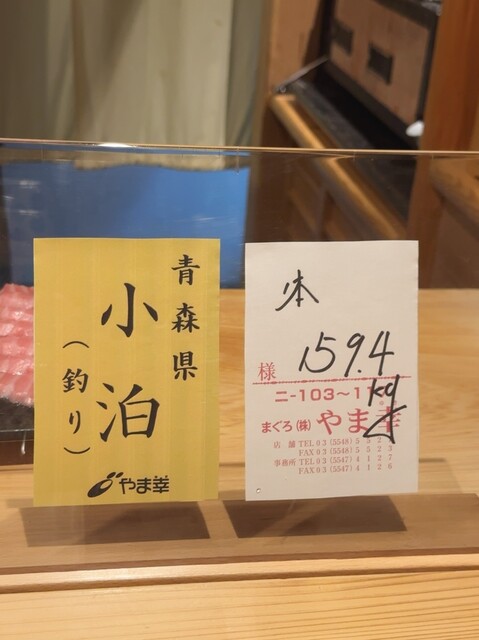 青森県
小泊
（釣り）
やま幸
本
様 159.4
kg
ニ-103～11
まぐろ（株）やま幸
店舗 TEL 03 (5548) 5
FAX 03 (5548) 5 5 2 3
事務所 TEL 03 (5547) 4 1 2 7
FAX 03 (5547) 4 1 2 6